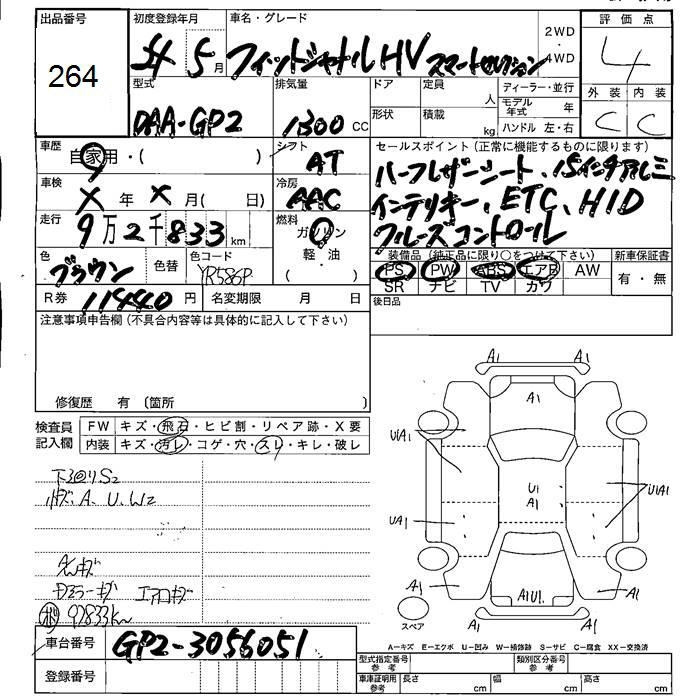 出品番号
264
初度登録年月
車名・グレード
5月 フィットシャトルHV スマートセレクション
2WD
・
4WD
評価点
4
外装 内装
C C
型式
DAA-GP2
排気量
1300 CC
ドア 定員
人
形状 積載
kg
ディーラー・並行
モデル年式 年
ハンドル 左・右
車歴
自家用・( )
シフト
AT
車検
X 年 X 月( 日)
冷房
AAC
走行
9万2千833 km
燃料
ガソリン
軽・油
( )
色
ブラウン
色替
色コード
YR586P
R券 11440 円
名変期限 月 日
セールスポイント(正常に機能するものに限ります)
ハーフレザーシート、15インチアルミ
インテリキー、ETC、HID
クルーズコントロール
装備品(純正品に限り○をつけて下さい)
PS PW ABS エアB AW
SR ナビ TV カワ
新車保証書
有・無
後日品
注意事項申告欄(不具合内容等は具体的に記入して下さい)
修復歴 有 〔箇所 〕
検査員
記入欄
FW キズ・飛石・ヒビ割・リペア跡・X要
内装 キズ・汚レ・コゲ・穴・スレ・キレ・破レ
下回りS2
A、U、W2
キズ
Dミラーキズ エアロキズ
92833km
車台番号 GP2-3056051
登録番号
A1 A1
A1
U1A1
U1
A1
U1A1
UA1
A1 A1U1 A1
A1 A1
スペア
A-キズ E-エクボ U-凹み W-補修跡 S-サビ C-腐食 XX-交換済
型式指定番号
参考
類別区分番号
参考
車庫証明用
参考
長さ cm
幅 cm
高さ cm